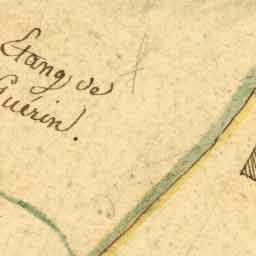 Etang de
Guérin.